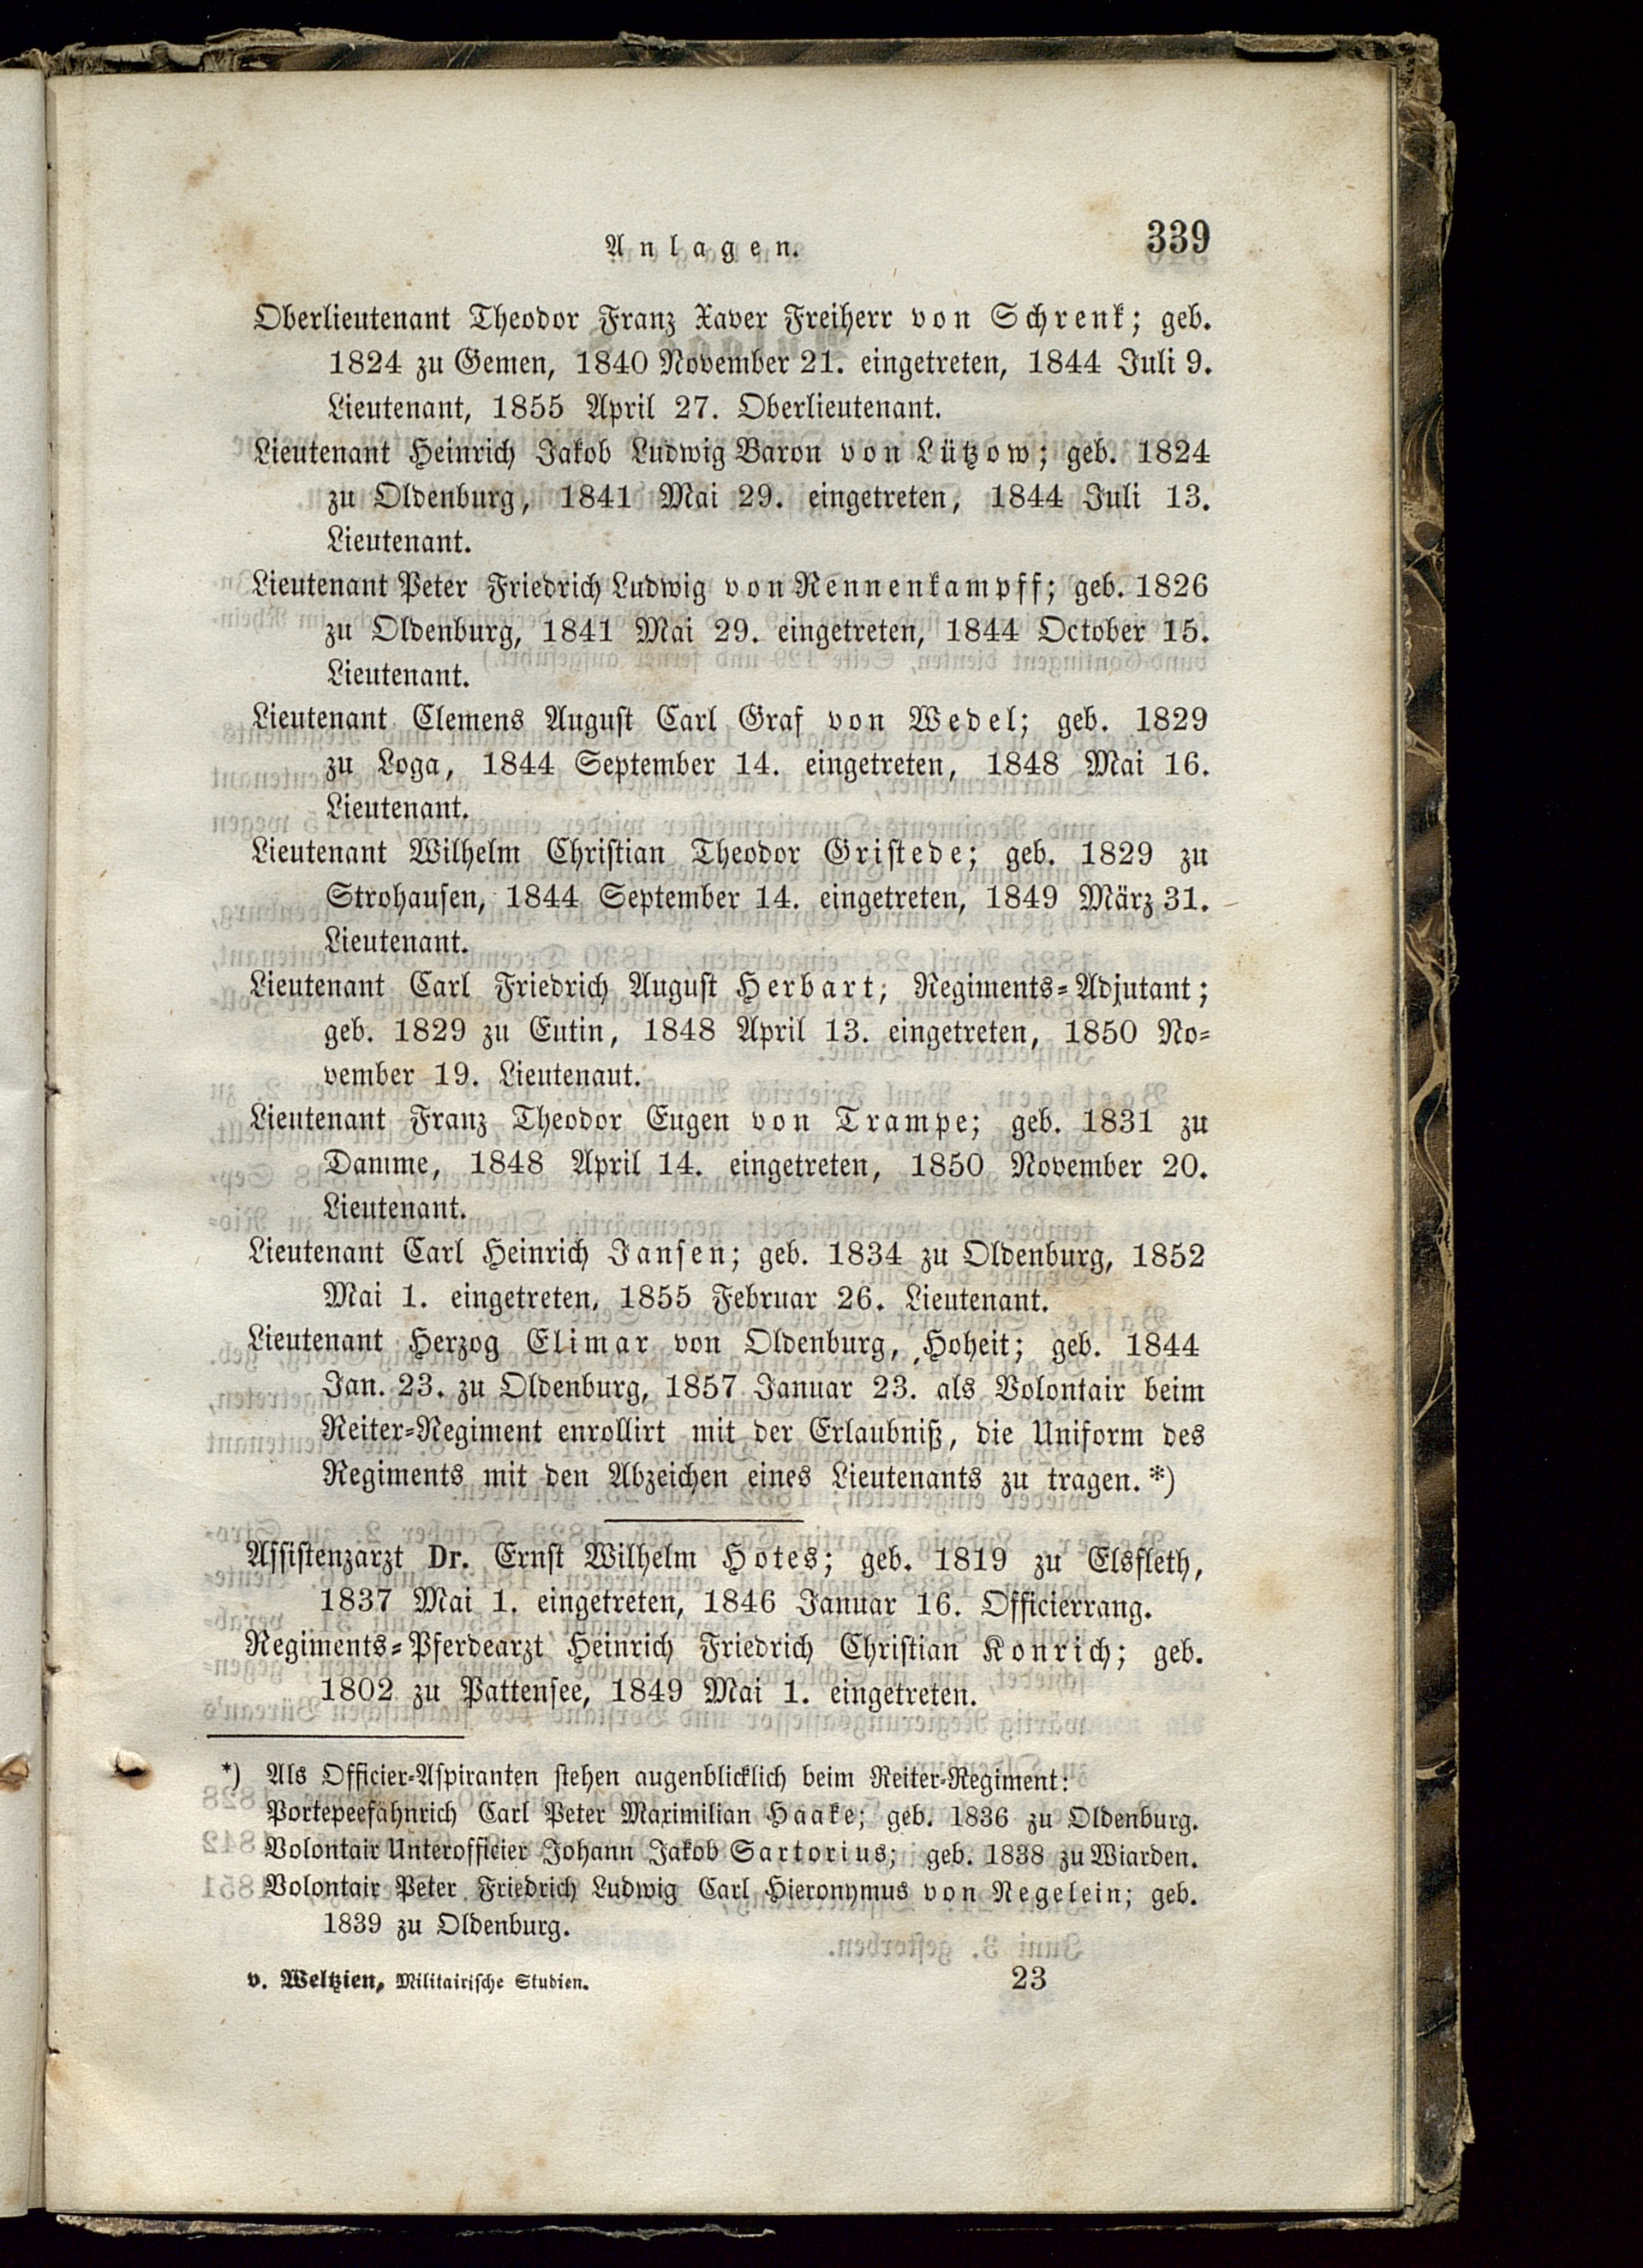 Anlagen. 339
Oberlieutenant Theodor Franz Xaver Freiherr von Schrenk; geb.
1824 zu Gemen, 1840 November 21. eingetreten, 1844 Juli 9.
Lieutenant, 1855 April 27. Oberlieutenant.
Lieutenant Heinrich Jakob Ludwig Baron von Lützow; geb. 1824
zu Oldenburg, 1841 Mai 29. eingetreten, 1844 Juli 13.
Lieutenant.
Lieutenant Peter Friedrich Ludwig von Rennenkampff; geb. 1826
zu Oldenburg, 1841 Mai 29. eingetreten, 1844 October 15.
Lieutenant.
Lieutenant Clemens August Carl Graf von Wedel; geb. 1829
zu Loga, 1844 September 14. eingetreten, 1848 Mai 16.
Lieutenant.
Lieutenant Wilhelm Christian Theodor Gristede; geb. 1829 zu
Strohausen, 1844 September 14. eingetreten, 1849 März 31.
Lieutenant.
Lieutenant Carl Friedrich August Herbart; Regiments-Adjutant;
geb. 1829 zu Eutin, 1848 April 13. eingetreten, 1850 No-
vember 19. Lieutenaut.
Lieutenant Franz Theodor Eugen von Trampe; geb. 1831 zu
Damme, 1848 April 14. eingetreten, 1850 November 20.
Lieutenant.
Lieutenant Carl Heinrich Jansen; geb. 1834 zu Oldenburg, 1852
Mai 1. eingetreten, 1855 Februar 26. Lieutenant.
Lieutenant Herzog Elimar von Oldenburg, Hoheit; geb. 1844
Jan. 23. zu Oldenburg, 1857 Januar 23. als Volontair beim
Reiter-Regiment enrollirt mit der Erlaubniß, die Uniform des
Regiments mit den Abzeichen eines Lieutenants zu tragen. *)
Assistenzarzt Dr. Ernst Wilhelm Hotes; geb. 1819 zu Elsfleth,
1837 Mai 1. eingetreten, 1846 Januar 16. Officierrang.
Regiments-Pferdearzt Heinrich Friedrich Christian Konrich; geb.
1802 zu Pattensee, 1849 Mai 1. eingetreten.
*) Als Officier-Aspiranten stehen augenblicklich beim Reiter-Regiment:
Portepeefähnrich Carl Peter Maximilian Haake; geb. 1836 zu Oldenburg.
Volontair Unterofficier Johann Jakob Sartorius; geb. 1838 zu Wiarden.
Volontair Peter Friedrich Ludwig Carl Hieronymus von Negelein; geb.
1839 zu Oldenburg.
v. Weltzien, Militairische Studien. 23